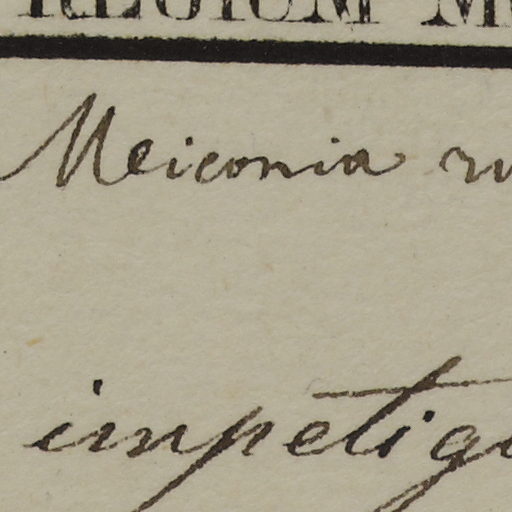 REGIUM M
Meiconia ru
impetigi